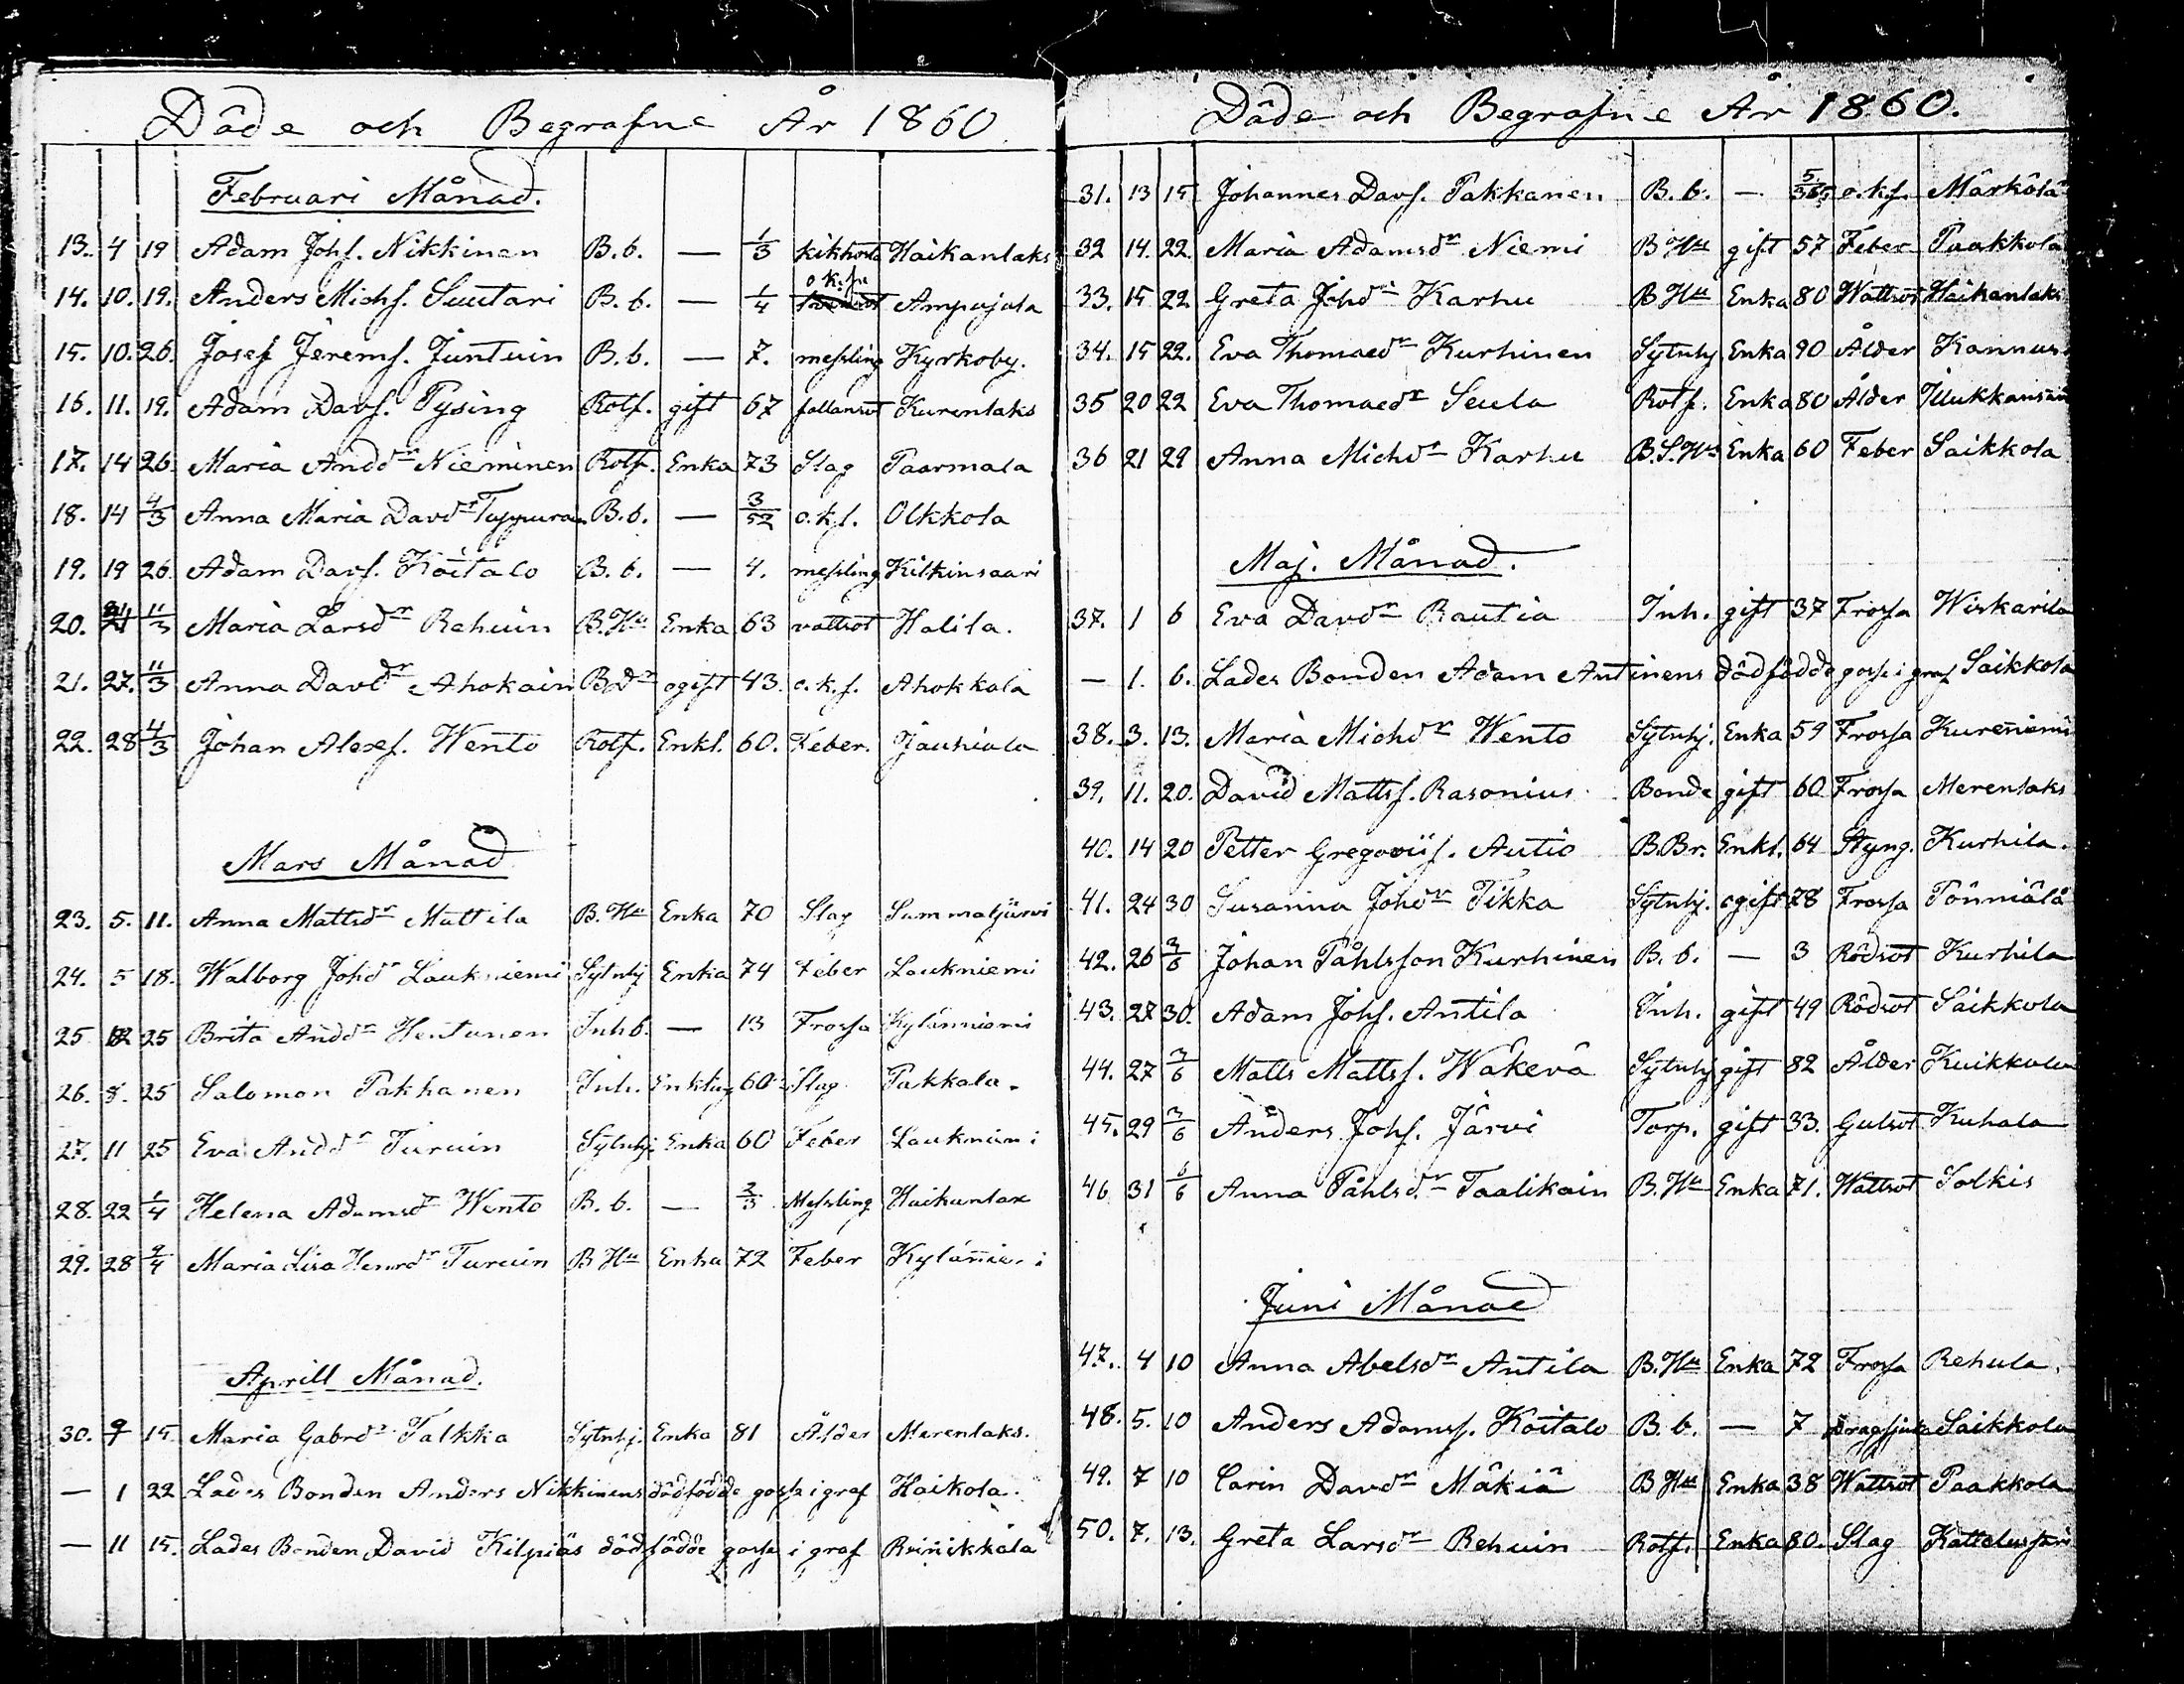 Döde och Begrafne År 1860
Februari Månad.
13. 4 19 Adam Johs. Nikkinen B.b. — 1/3 kikhosta Haikanlaks
14. 10. 19. Anders Michs. Suutari B.b. — 1/4 o.k.s. Ampujala
15. 10. 26. Josef Jerems. Juntuin B.b. — 7. messling Kyrkoby.
16. 11. 19. Adam Davs. Pysing Rotf. gift 67 fallansot Kurenlaks
17. 14 26. Maria Andd:r Nieminen Rotf. Enka 73 Slag Paarmala
18. 14 4/3 Anna Maria Davd:r B.b. — 3/52 o.k.s. Olkkola
19. 19 26. Adam Davs. Koitalo B.b. — 4. messling Kilkinsaari
20. 11/3 Maria Larsd:r Rehuin B.Hu Enka 63 vattsot Halila.
21. 27. 11/3 Anna Davd:r Ahokain B.D:r ogift 43. o.k.s. Ahokkala
22. 28 4/3 Johan Alexs. Wento Rotf. Enkl. 60. Feber. Jauhiala
Mars Månad
23. 5. 11. Anna Mattsd:r Mattila B.Hu Enka 70 Slag Summatjärvi
24. 5 18. Walborg Johd:r Laukniemi Sytnhj Enka 74 Feber Laukniemi
25 12 25 Brita Andd:r Hentunen Inh.b. — 13 Frossa Kylänniemi
26. 8. 25 Salomon Pakkanen Inh. Enkling 60 Slag Pakkala.
27. 11 25 Eva Andd:r Turuin Sytnhj. Enka 60 Feber Laukniemi
28. 22 1/4 Helena Adamsd:r Wento B.b. — 2/3 Messling Haikanlax
29. 28 9/4 Maria Lisa Henrd:r Turuin B Hu Enka 72 Feber Kylänniemi
Aprill Månad.
30. 9 15. Maria Gabrd:r Talkka Sytnhj. Enka 81 Ålder Merenlaks.
— 1 22 Lades Bonden Anders Nikkinens dödfödde gosse i graf Haikola.
— 11 15. Lades Bonden David Kilpiäs dödfödde gosse i graf Reinikkala
Döde och Begrafne År 1860.
31. 13 15 Johannes Davs. Pakkanen B.b. — 5/365 o.k.s. Märkölä
32 14. 22. Maria Adamsd:r Niemi B Hu gift 57 Feber Paakkola
33. 15 22 Greta Johd:r Karhu B Hu Enka 80 Wattsot Haikanlaks
34. 15 22. Eva Thomaed:r Kurhinen Sytnhj Enka 90 Ålder Kannus.
35 20 22 Eva Thomaed:r Seula Rotf. Enka 80 Ålder
36 21 29 Anna Michd:r Karhu B.S.Hu Enka 60 Feber Saikkola
Maj. Månad.
37. 1 6 Eva Davd:r Rautia Inh. gift 37 Frossa Wiskarila
— 1. 6. Lades Bonden Adam Antinens dödfödde gosse i graf Saikkola
38. 3. 13. Maria Michd:r Wento Sytnhj. Enka 59 Frossa Kurenniemi
39. 11. 20. David Mattss. Rasonius Bonde gift 60 Frossa Merenlaks
40. 14 20 Petter Gregoriis. Autio B.Br. Enkl. 64 Styng. Kurhila.
41. 24 30 Susanna Johd:r Tikka Sytnhj. ogift 78 Frossa Pönniälä
42. 26 3/6 Johan Påhlsson Kurhinen B.b. — 3 Rödsot Kurhila
43. 27 30. Adam Johs. Antila Inh. gift 49 Rödsot Saikkola
44. 27 3/6 Matts Mattss. Wäkevä Sytnhj gift 82 Ålder Kuikkola
45. 29 3/6 Anders Johs. Järvi Torp. gift 33. Gulsot Kuhala
46 31 6/6 Anna Påhlsd:r Taalikain B.Hu Enka 71. Wattsot Solkis
Juni Månad
47. 4 10 Anna Abelsd:r Antila B.Hu Enka 72 Frossa Rehula.
48. 5. 10 Anders Adamss. Koitalo B.b. — 7 dragsjuka Saikkola
49. 7 10 Carin Davd:r Mäkiä B Hu Enka 38 Wattsot Paakkola
50. 7. 13. Greta Larsd:r Rehuin Rotf. Enka 80. Slag Kattelussari